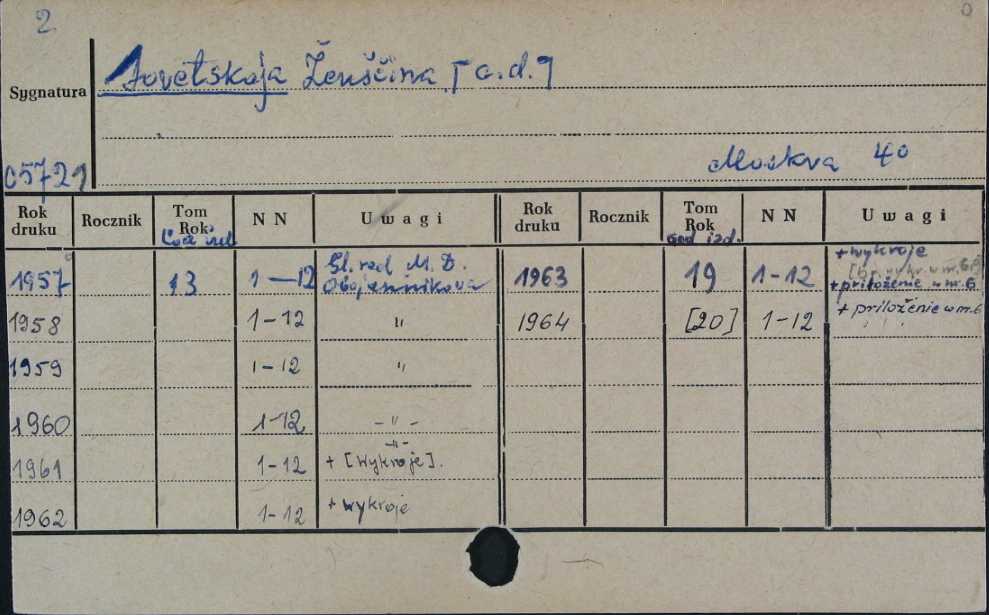 2.
Sovetskaja Ženščina [c.d.]
Sygnatura
Moskva 40
05721
Rok druku Rocznik Tom Rok NN Uwagi Rok druku Rocznik Tom Rok NN Uwagi
God izd.
1957 13 1-12 Gl. red M. D. Ovsjannikova 1963 19 1-12 + wykroje
+ priloženie w nr. 6
1958 1-12 " 1964 [20] 1-12 + priloženie w nr. 6
1959 1-12 "
1960 1-12 - " -
1961 1-12 - " - + [wykroje].
1962 1-12 + wykroje